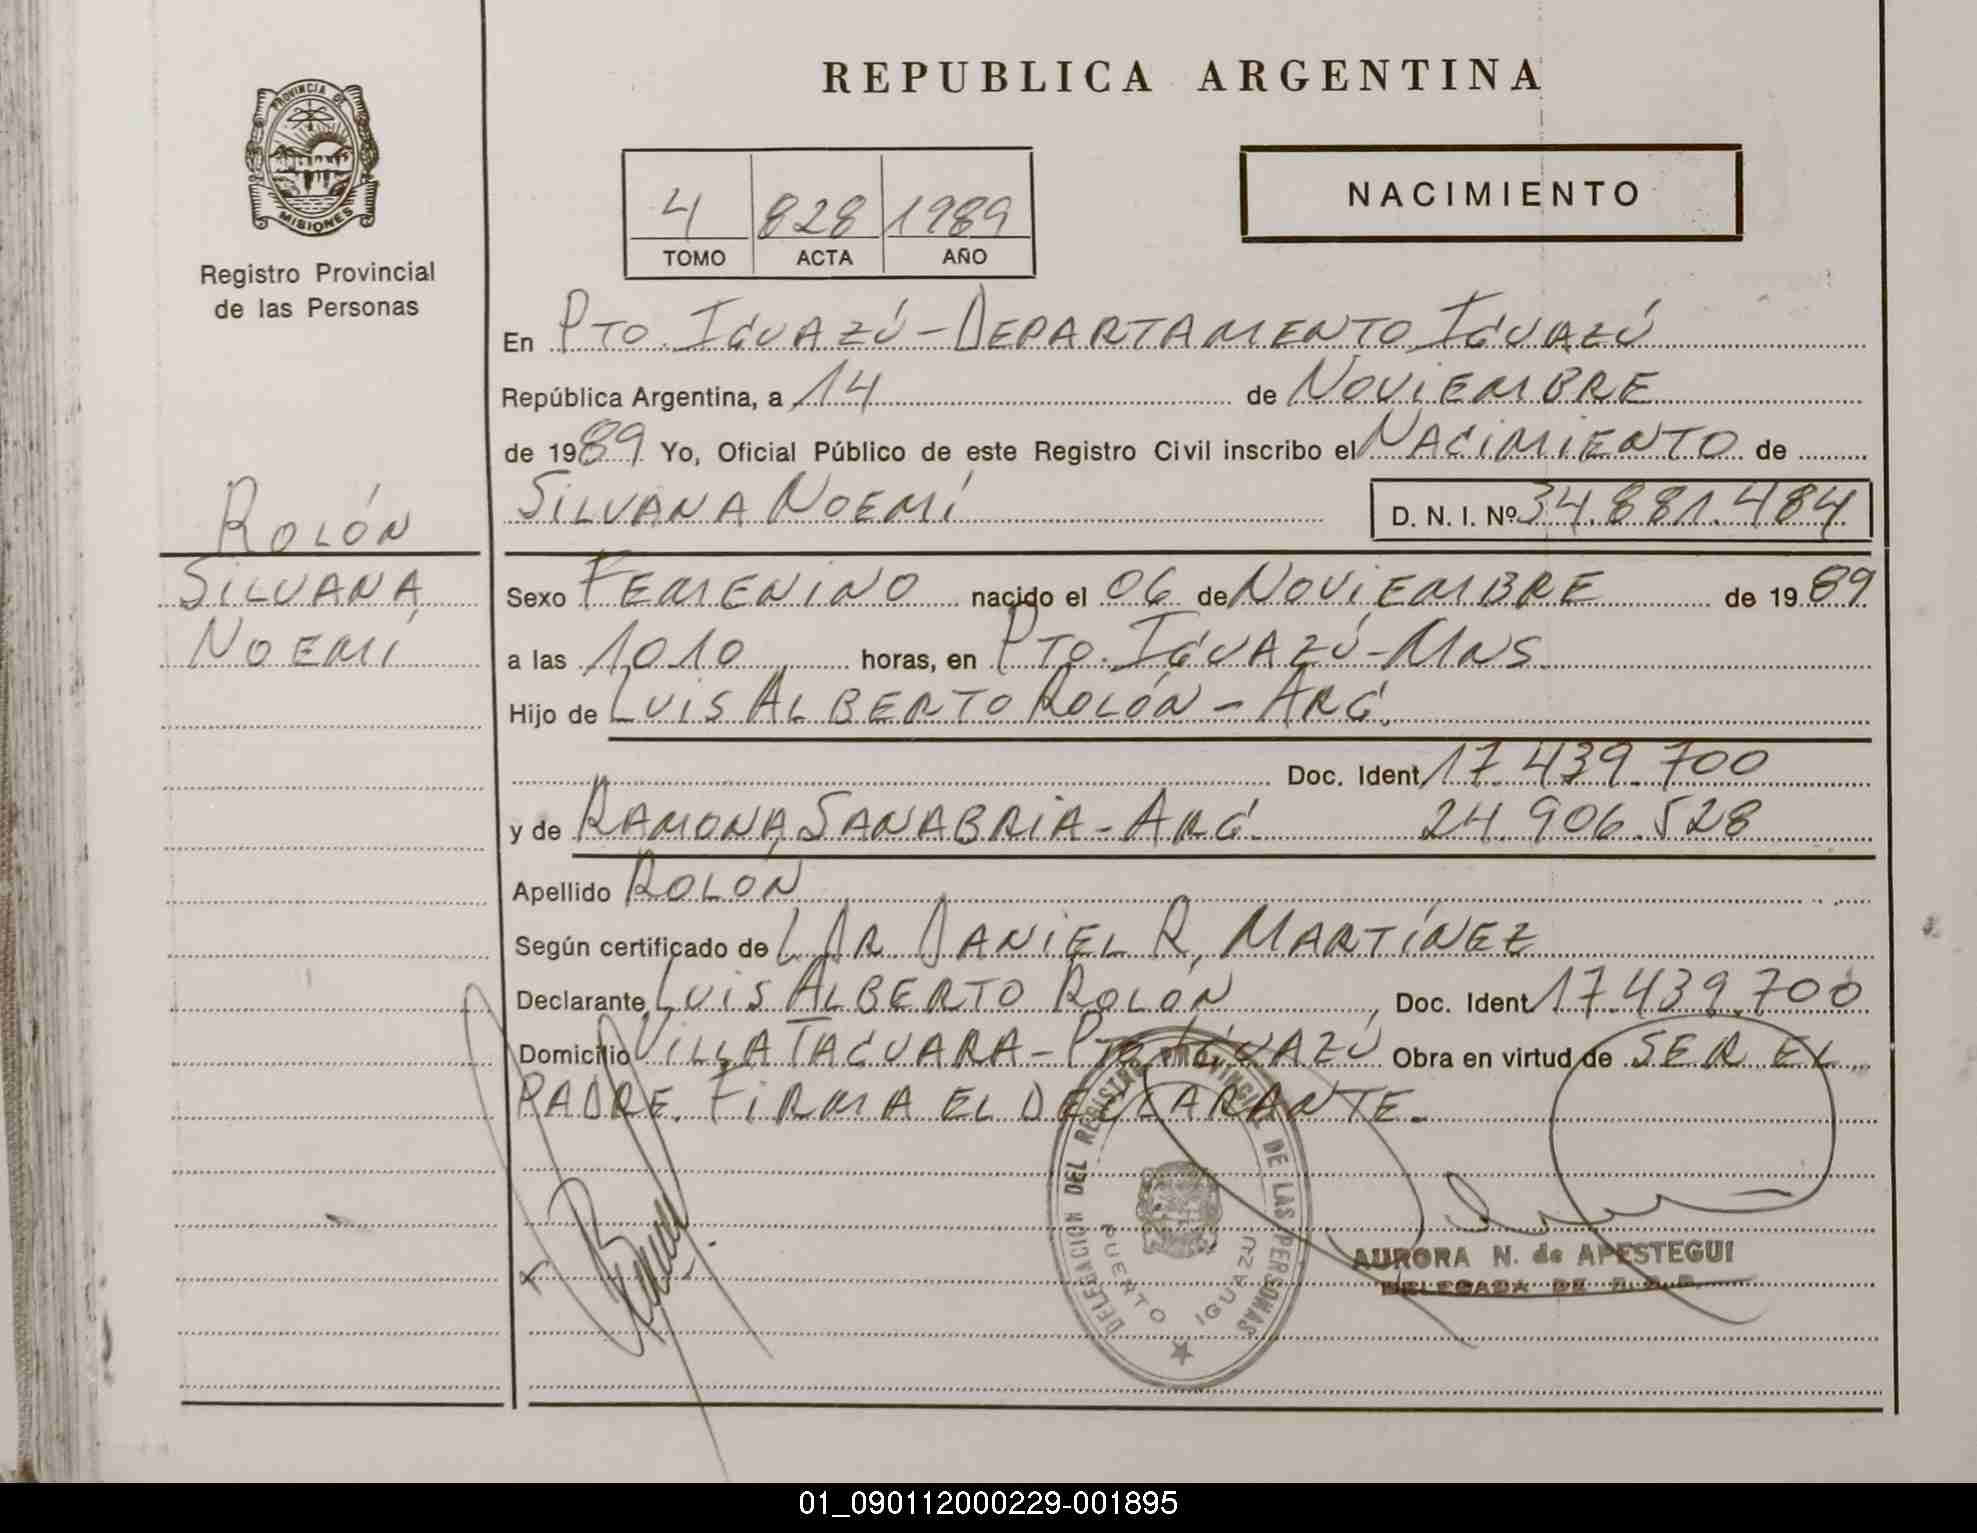 REPUBLICA ARGENTINA
PROVINCIA DE
MISIONES
Registro Provincial
de las Personas
NACIMIENTO
4 828 1989
TOMO ACTA AÑO
En PTO. IGUAZÚ - DEPARTAMENTO IGUAZÚ
República Argentina, a 14 de NOVIEMBRE
de 1989 Yo, Oficial Público de este Registro Civil inscribo el NACIMIENTO de
SILVANA NOEMÍ D. N. I. Nº 34.881.484
ROLÓN
SILVANA
NOEMÍ
Sexo FEMENINO nacido el 06 de NOVIEMBRE de 1989
a las 10.10 horas, en PTO. IGUAZÚ - MNS.
Hijo de LUIS ALBERTO ROLÓN - ARG.
Doc. Ident. 17.439.700
y de RAMONA SANABRIA - ARG. 24.906.528
Apellido ROLÓN
Según certificado de DR. DANIEL R. MARTÍNEZ
Declarante LUIS ALBERTO ROLÓN, Doc. Ident. 17.439.700
Domicilio VILLA TACUARA - PTO. IGUAZÚ Obra en virtud de SER EL
PADRE. FIRMA EL DECLARANTE.
DELEGACION DEL REGISTRO PROVINCIAL DE LAS PERSONAS
PUERTO IGUAZU
AURORA N. de APESTEGUI
DELEGADA DE R.P.P.
01_090112000229-001895